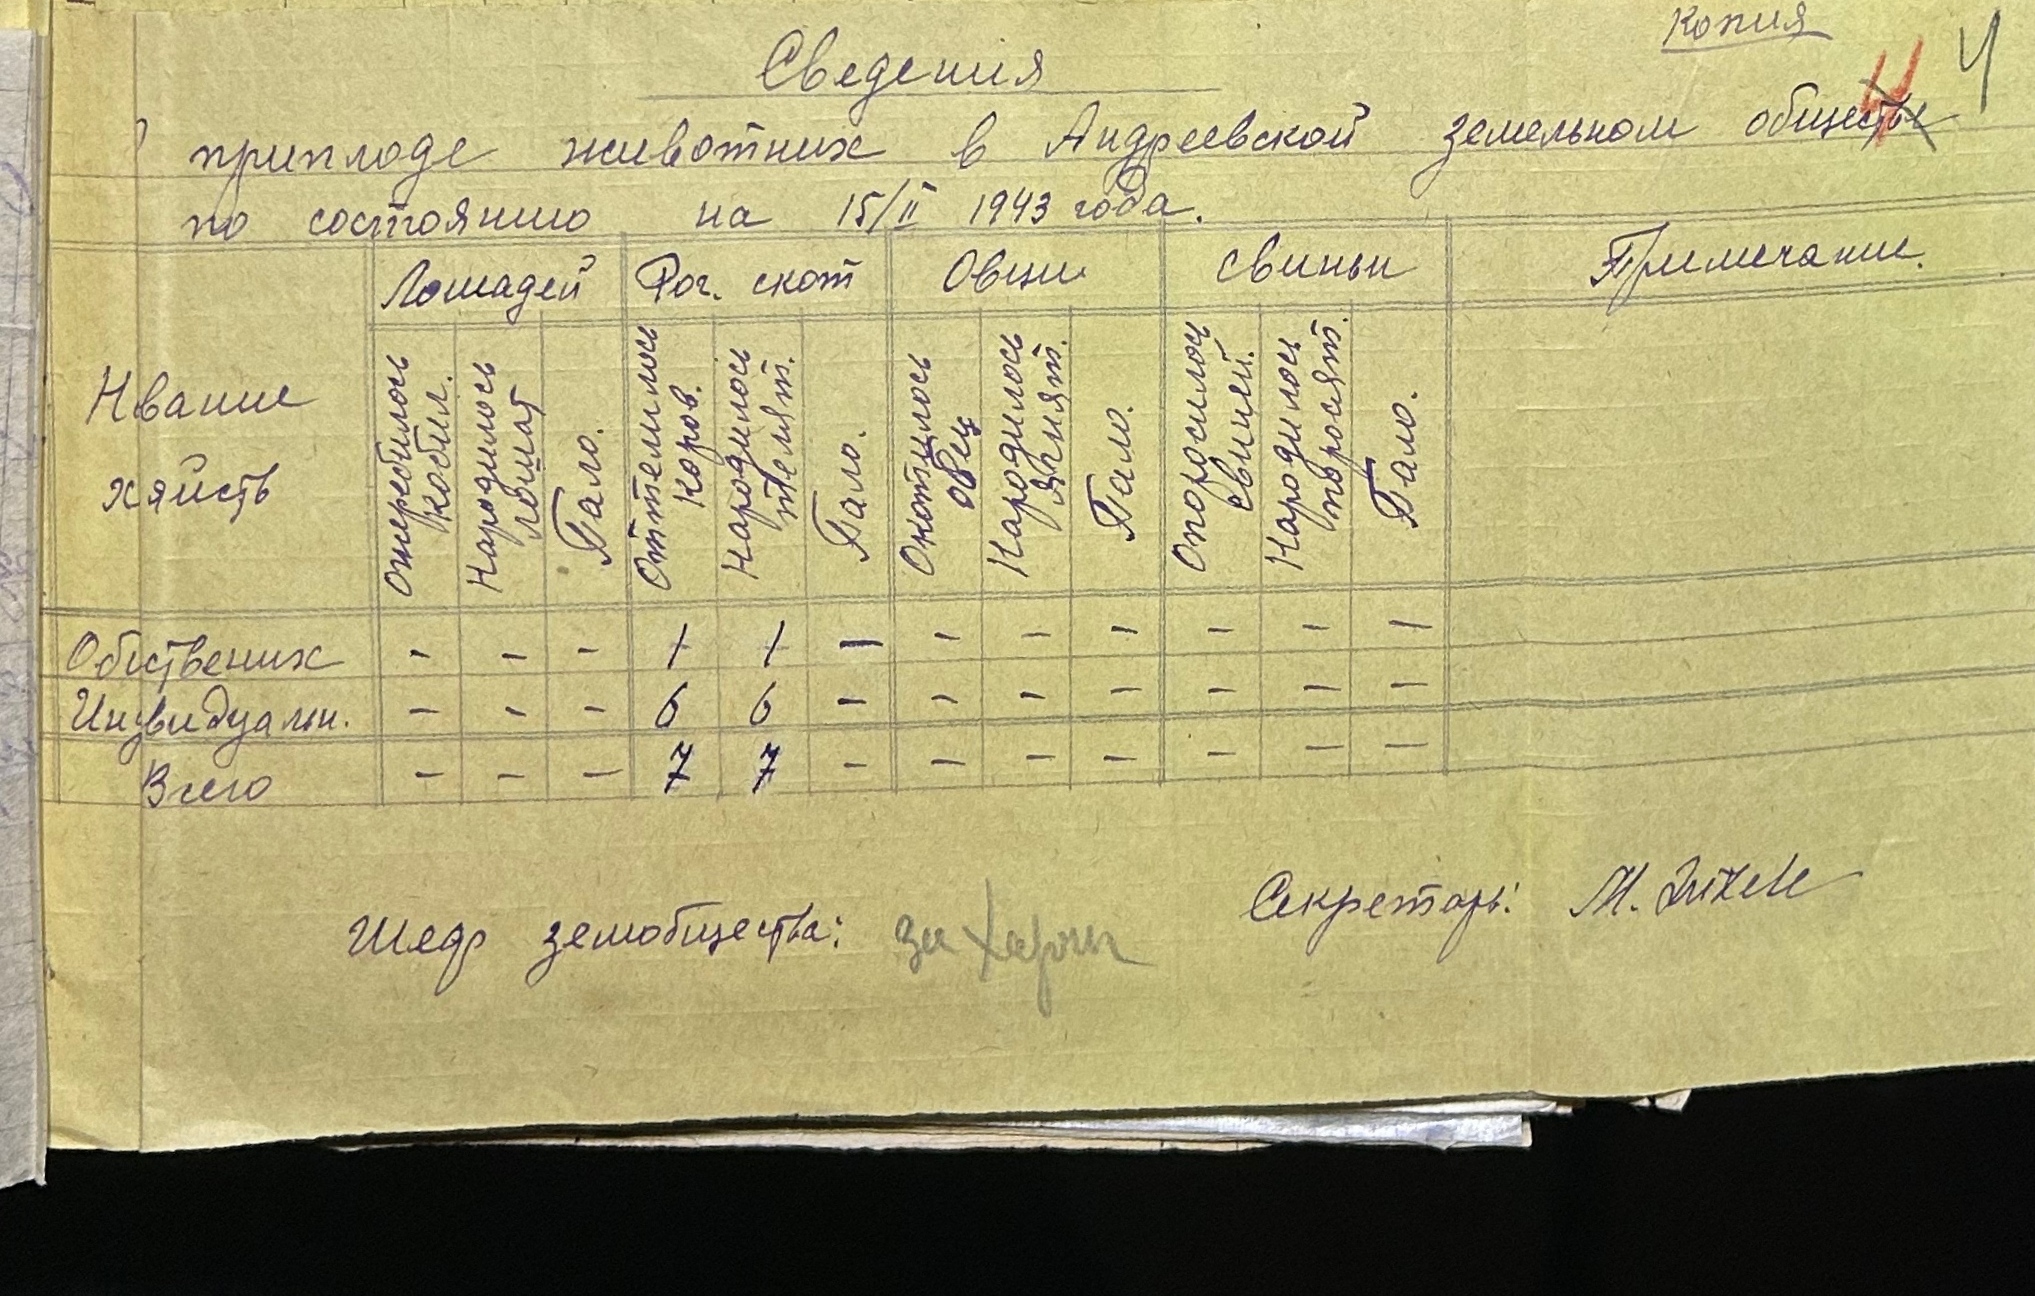 Копия
4
Сведения
приплоде животних в Андреевской земельном обществе
по состоянию на 15/II 1943 года.
Нвание хяйств | Лошадей | Рог. скот | Овци | Свиньи | Примечание.
Ожеребилось кобил. | Народилось лошат | Пало. | Оттелилось коров. | Народилось телят. | Пало. | Окотилось овец | Народилось ягнят. | Пало. | Опоросилось свиней. | Народилось поросят. | Пало.
Обствених - - - 1 1 - - - - - - -
Индвидуальн. - - - 6 6 - - - - - - -
Всего - - - 7 7 - - - - - - -
Шеф земобщества: за
Секретарь: М.